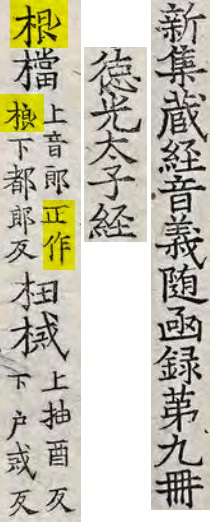 新集蔵経音義随函録第九冊
徳光太子経
根檔
上音郎正作
桹下都郎反
杻械
上抽酉反
下戸戒反